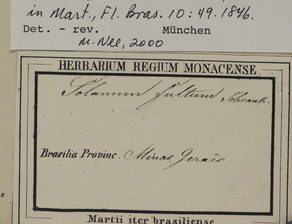 in Mart., Fl. Bras. 10:49. 1846.
Det. - rev. München
M. Nee, 2000
HERBARIUM REGIUM MONACENSE.
Solanum fultum Schrank.
Brasilia Provinc. Minas Geraës.
Martii iter brasiliense